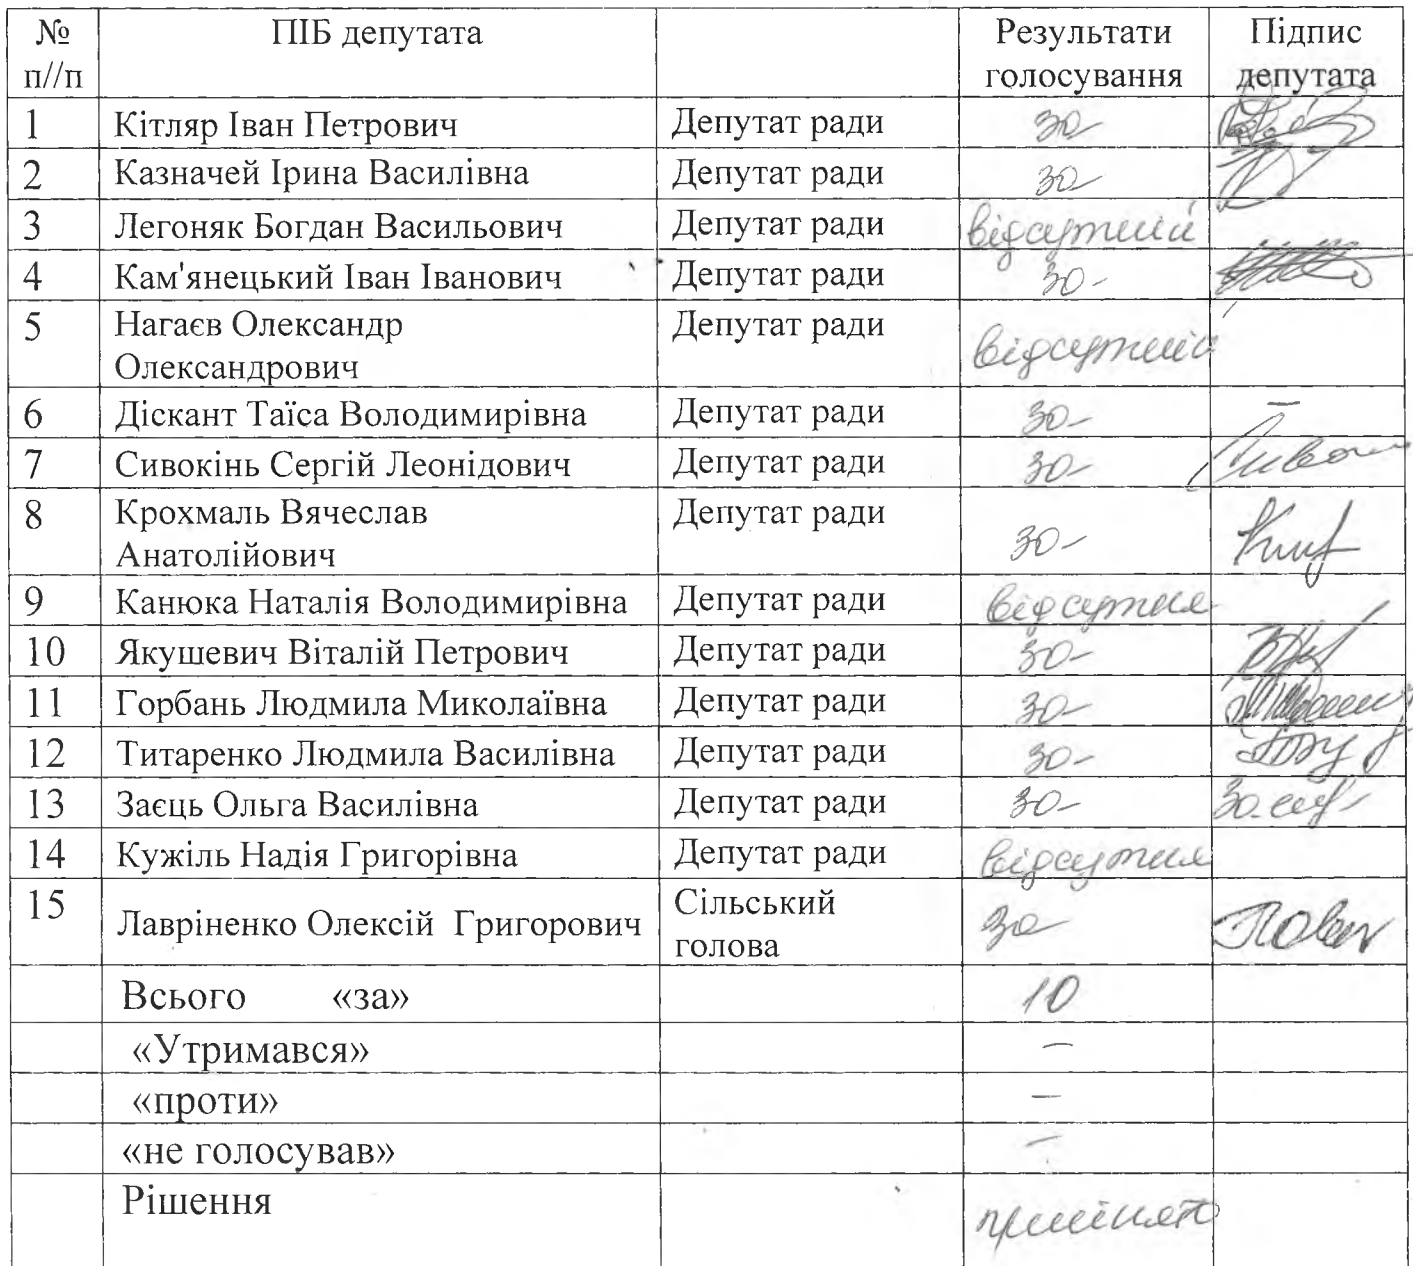 № п//п ПІБ депутата Результати голосування Підпис депутата
1 Кітляр Іван Петрович Депутат ради за
2 Казначей Ірина Василівна Депутат ради за
3 Легоняк Богдан Васильович Депутат ради відсутній
4 Кам'янецький Іван Іванович Депутат ради за
5 Нагаєв Олександр Олександрович Депутат ради відсутній
6 Діскант Таїса Володимирівна Депутат ради за –
7 Сивокінь Сергій Леонідович Депутат ради за
8 Крохмаль Вячеслав Анатолійович Депутат ради за
9 Канюка Наталія Володимирівна Депутат ради відсутня
10 Якушевич Віталій Петрович Депутат ради за
11 Горбань Людмила Миколаївна Депутат ради за
12 Титаренко Людмила Василівна Депутат ради за
13 Заєць Ольга Василівна Депутат ради за
14 Кужіль Надія Григорівна Депутат ради відсутня
15 Лавріненко Олексій Григорович Сільський голова за
Всього «за» 10
«Утримався» –
«проти» –
«не голосував» –
Рішення прийнято